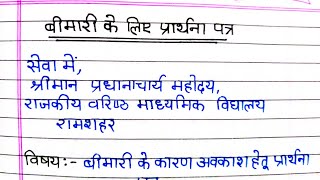 बीमारी के लिए प्रार्थना पत्र
सेवा में,
श्रीमान प्रधानाचार्य महोदय,
राजकीय वरिष्ठ माध्यमिक विद्यालय
रामशहर
विषय:- बीमारी के कारण अवकाश हेतू प्रार्थना